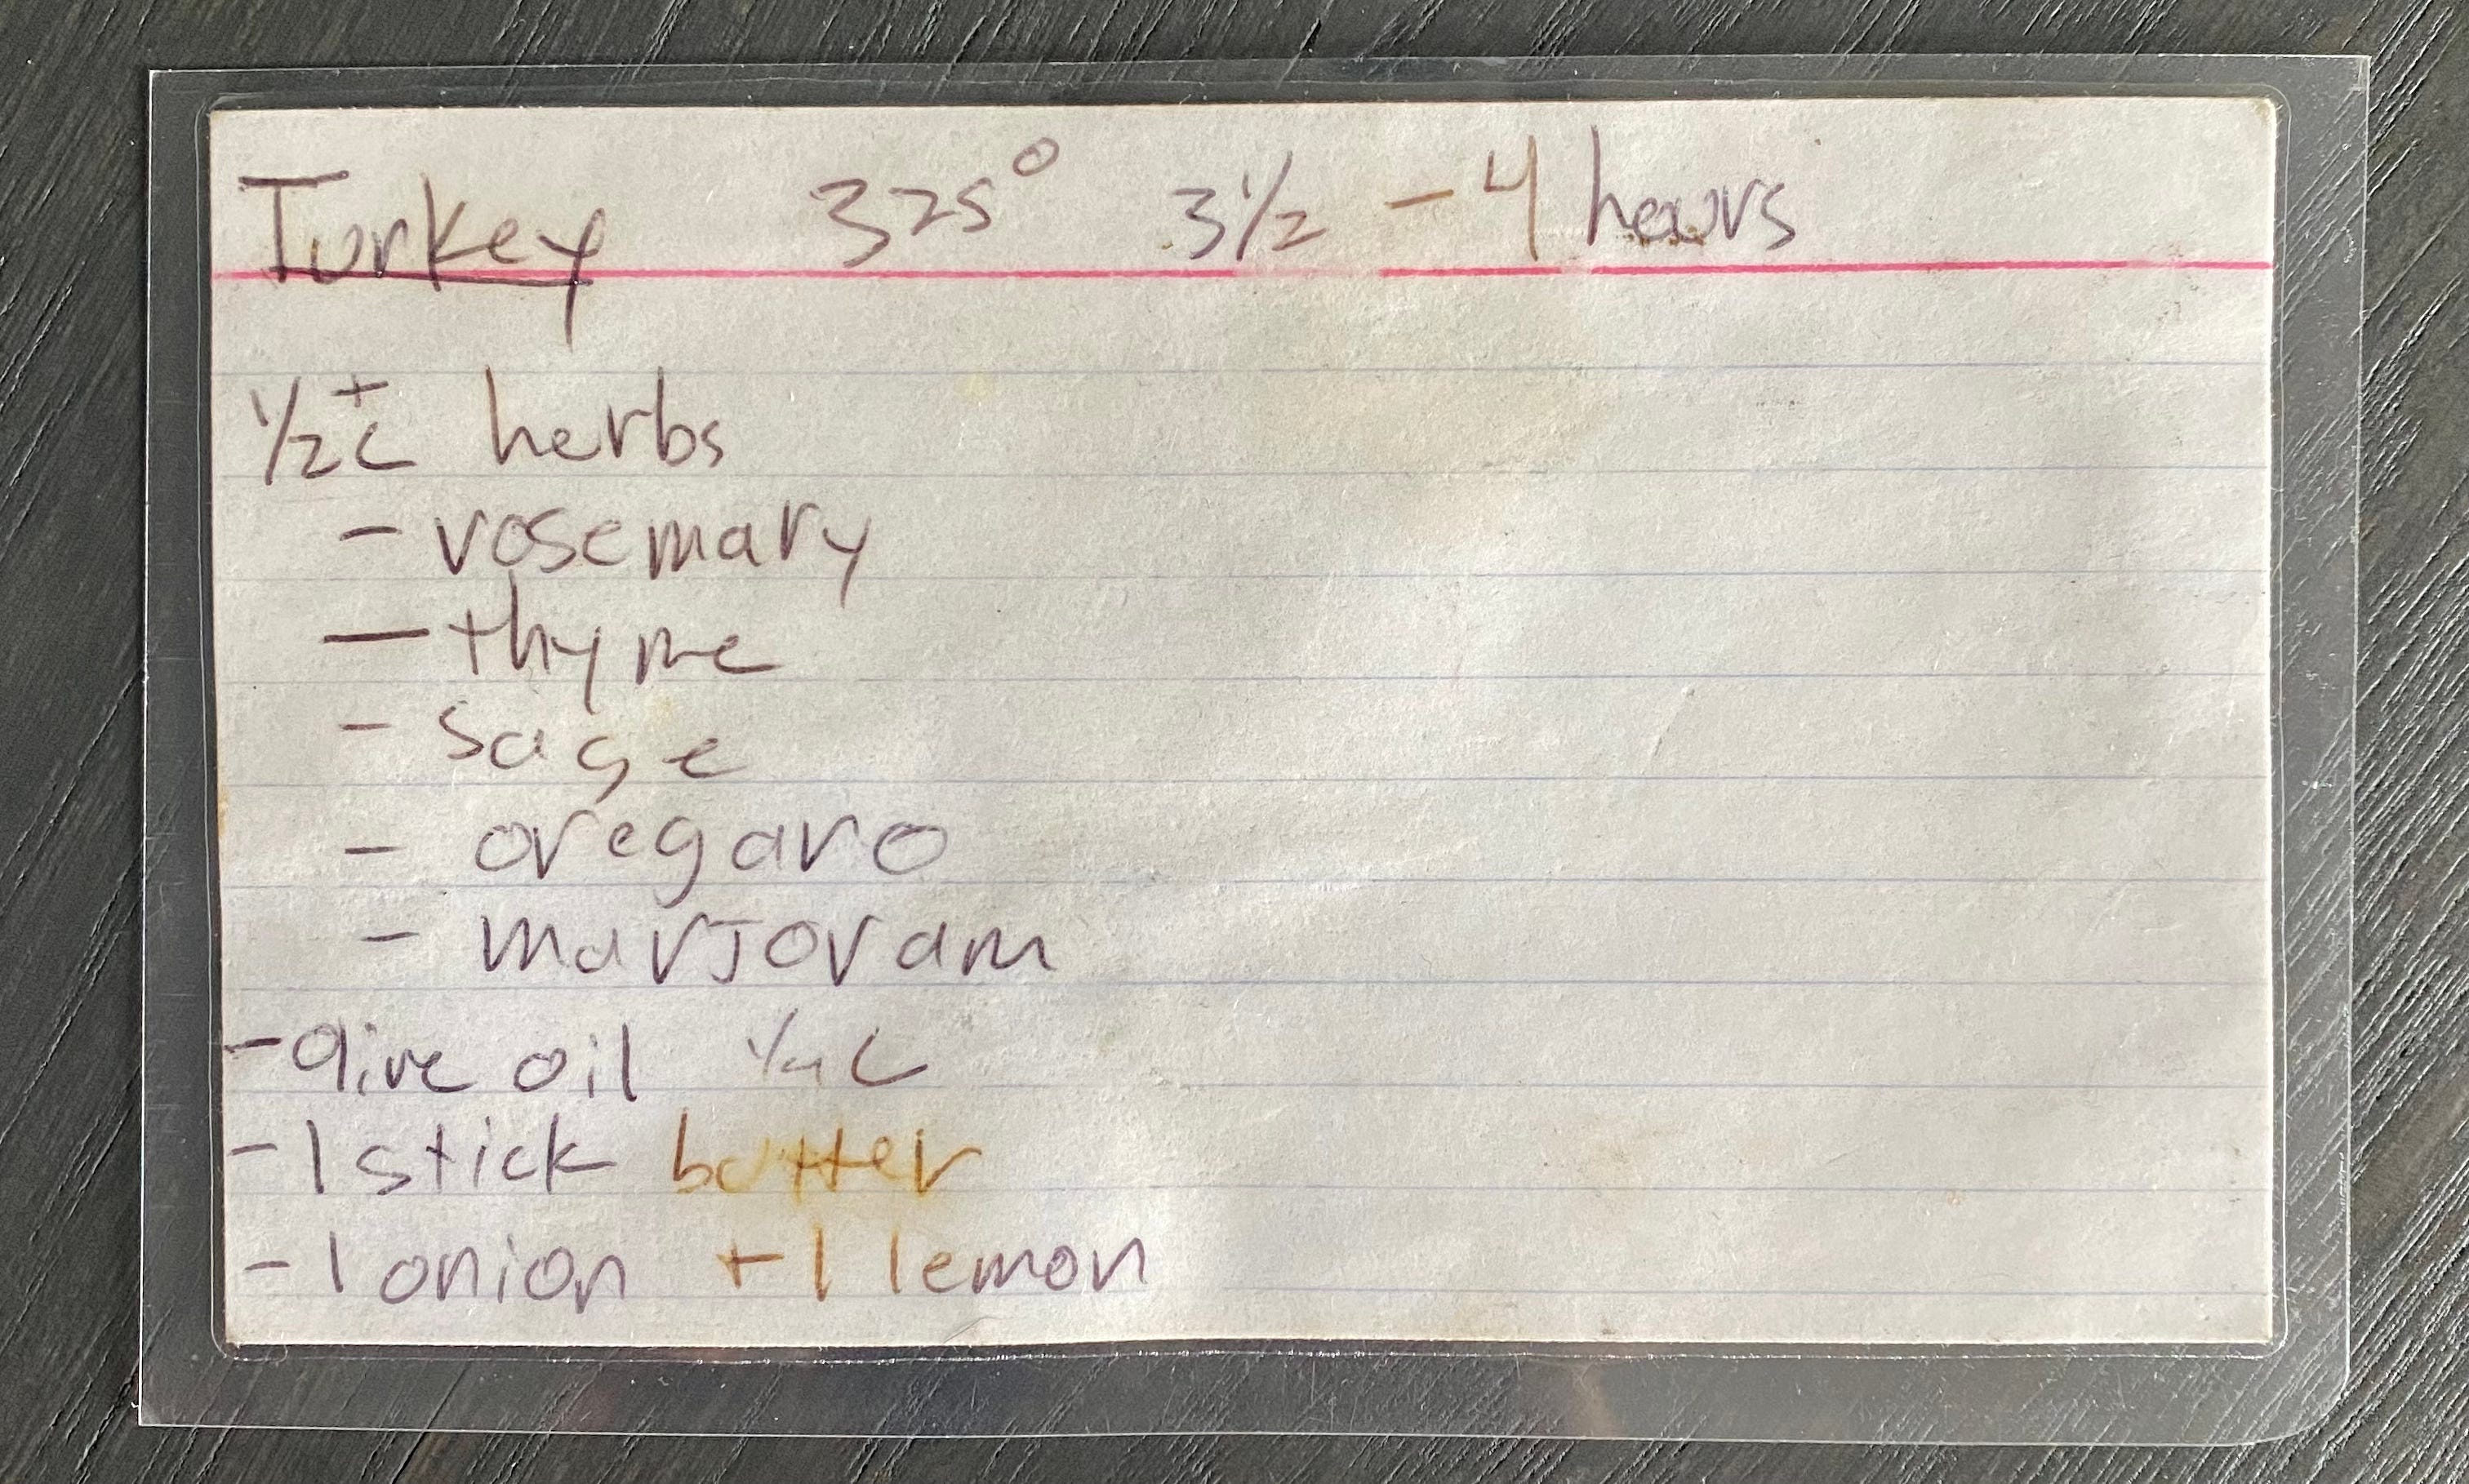 Turkey 325° 3½ - 4 hours
½ c+ herbs
- rosemary
- thyme
- sage
- oregano
- marjoram
- olive oil ¼ c
- 1 stick butter
- 1 onion + 1 lemon